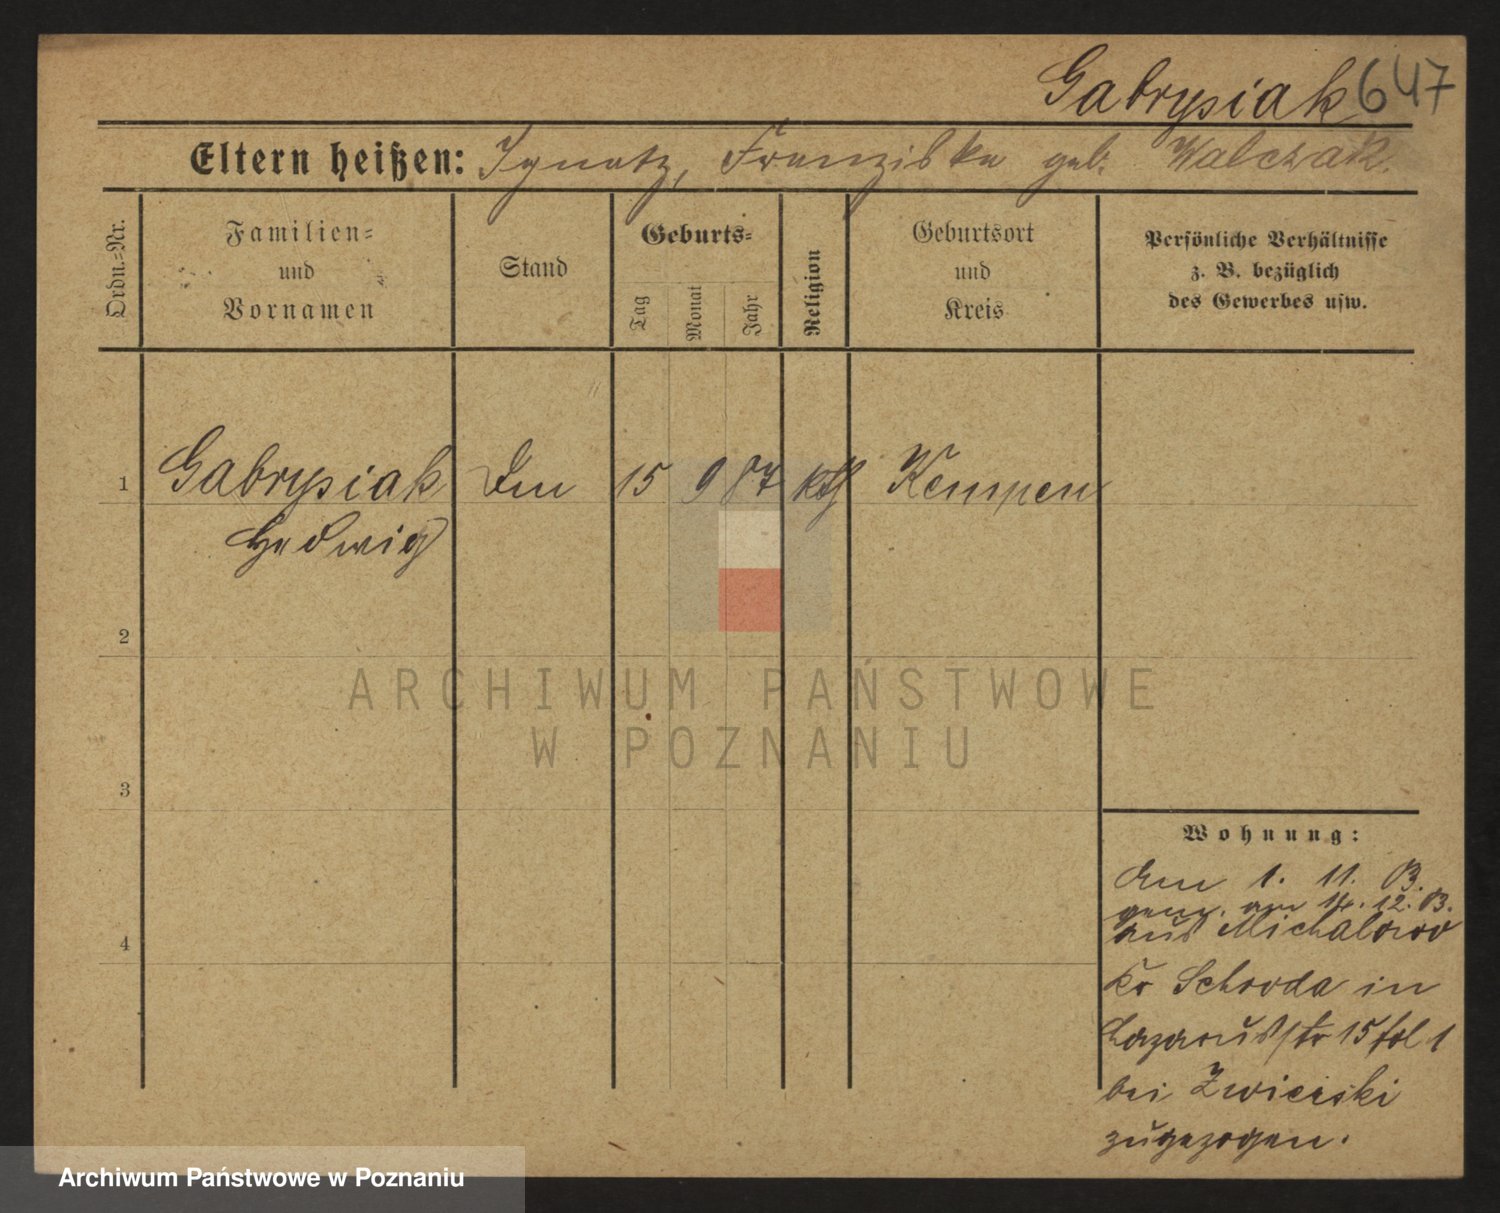 Gabrysiak 647
Eltern heißen: Ignatz, Franziska geb. Walczak.
Ordn.-Nr.
Familien-
und
Vornamen
Stand
Geburts-
Tag
Monat
Jahr
Religion
Geburtsort
und
Kreis
Persönliche Verhältnisse
z. B. bezüglich
des Gewerbes usw.
1 Gabrysiak 15 9 87 kth Kempen
Hedwig
2
ARCHIWUM PAŃSTWOWE
W POZNANIU
3
4
Wohnung:
Am 1. 11. 13.
gem. am 14. 12. 13.
aus Michalowo
Kr Schroda in
Lazarusstr 15
bei Zwierski
zugezogen.
Archiwum Państwowe w Poznaniu